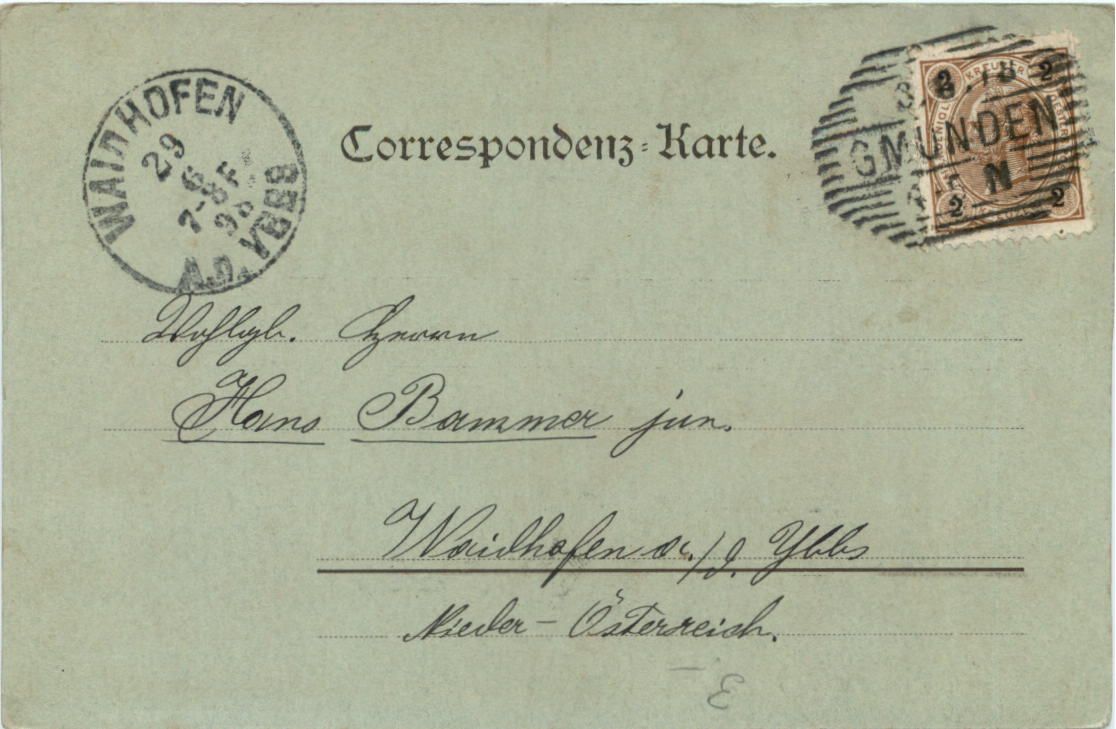 Correspondenz-Karte.
WAIDHOFEN
29
6
7-8F
98
A.D. YBBS
2 KREUZER 2
GMUNDEN
N
2 2
Wohlgb. Herrn
Hans Bammer jun.
Waidhofen a./d. Ybbs
Nieder-Österreich.